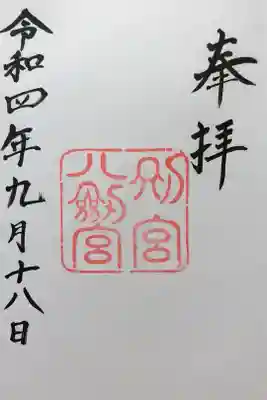 奉拝
別宮
八剱宮
令和四年九月十八日